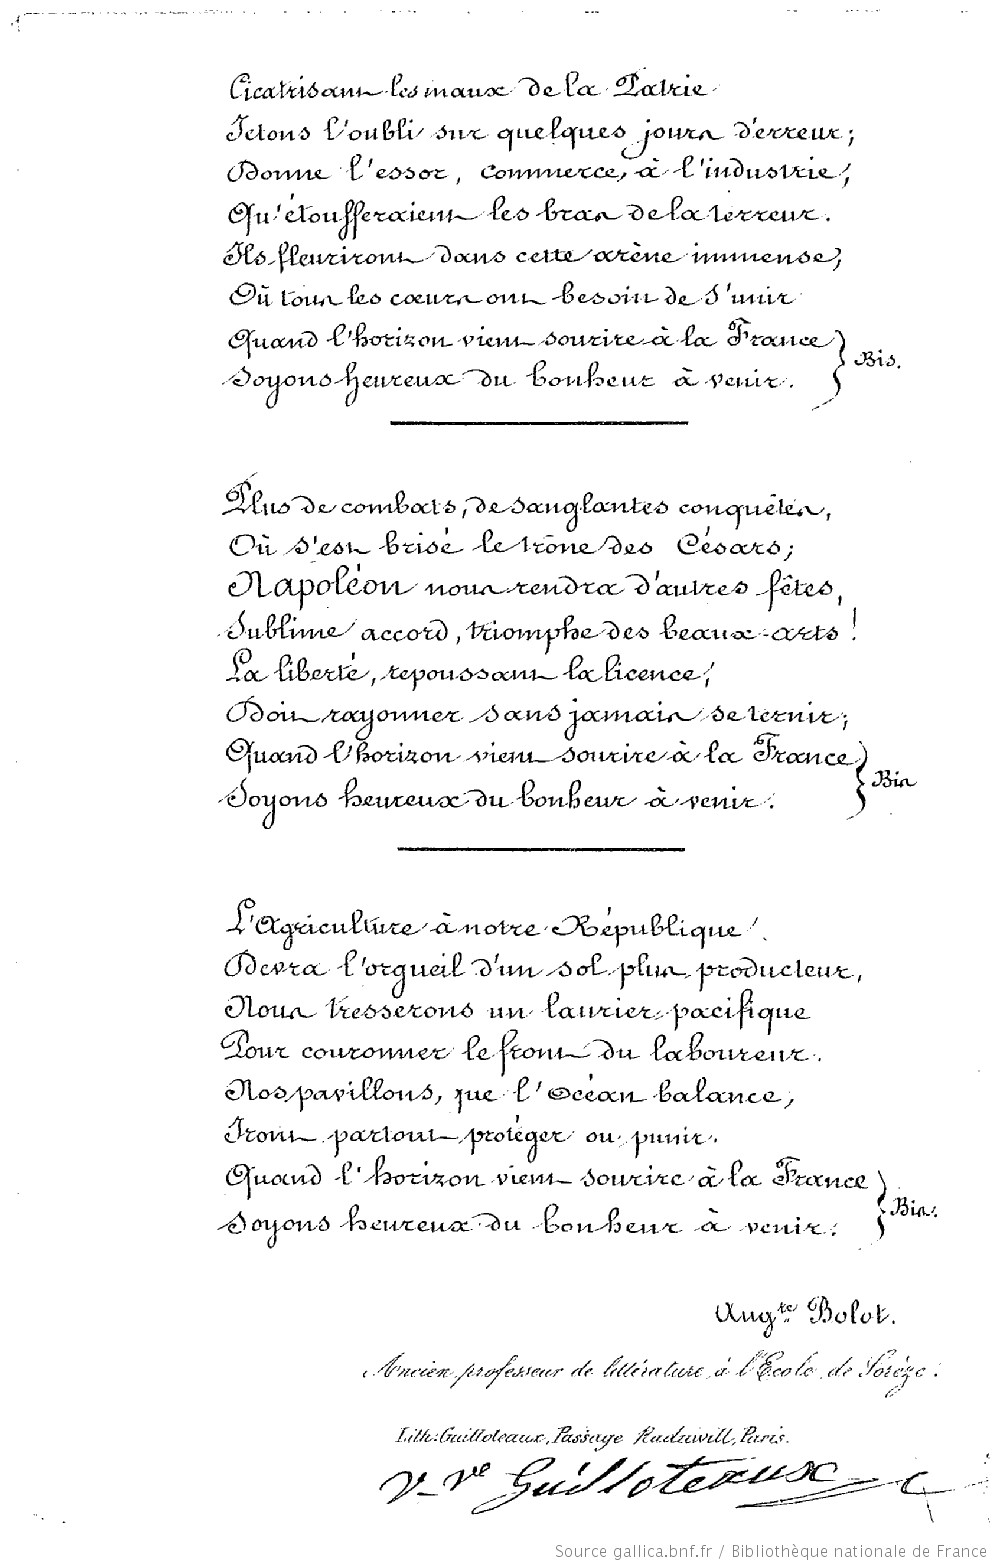 Cicatrisant les maux de la Patrie
Jetons l'oubli sur quelques jours d'erreur;
Donne l'essor, commerce, à l'industrie,
Qu'étoufferaient les bras de la terreur.
Ils fleuriront dans cette arène immense,
Où tous les cœurs ont besoin de s'unir
Quand l'horizon vient sourire à la France
Soyons heureux du bonheur à venir. } Bis.
Plus de combats, de sanglantes conquêtes,
Où s'est brisé le trône des Césars;
Napoléon nous rendra d'autres fêtes,
Sublime accord, triomphe des beaux-arts!
La liberté, repoussant la licence,
Doit rayonner sans jamais se ternir;
Quand l'horizon vient sourire à la France
Soyons heureux du bonheur à venir. } Bis
L'Agriculture à notre République
Devra l'orgueil d'un sol plus producteur,
Nous tresserons un laurier pacifique
Pour couronner le front du laboureur.
Nos pavillons, que l'Océan balance,
Iront partout protéger ou punir.
Quand l'horizon vient sourire à la France
Soyons heureux du bonheur à venir. } Bis.
Augte Bolot.
Ancien professeur de littérature à l'Ecole de Sorèze.
Lith: Guilloteaux, Passage Radziwill, Paris.
V-ve Guilloteaux
Source gallica.bnf.fr / Bibliothèque nationale de France